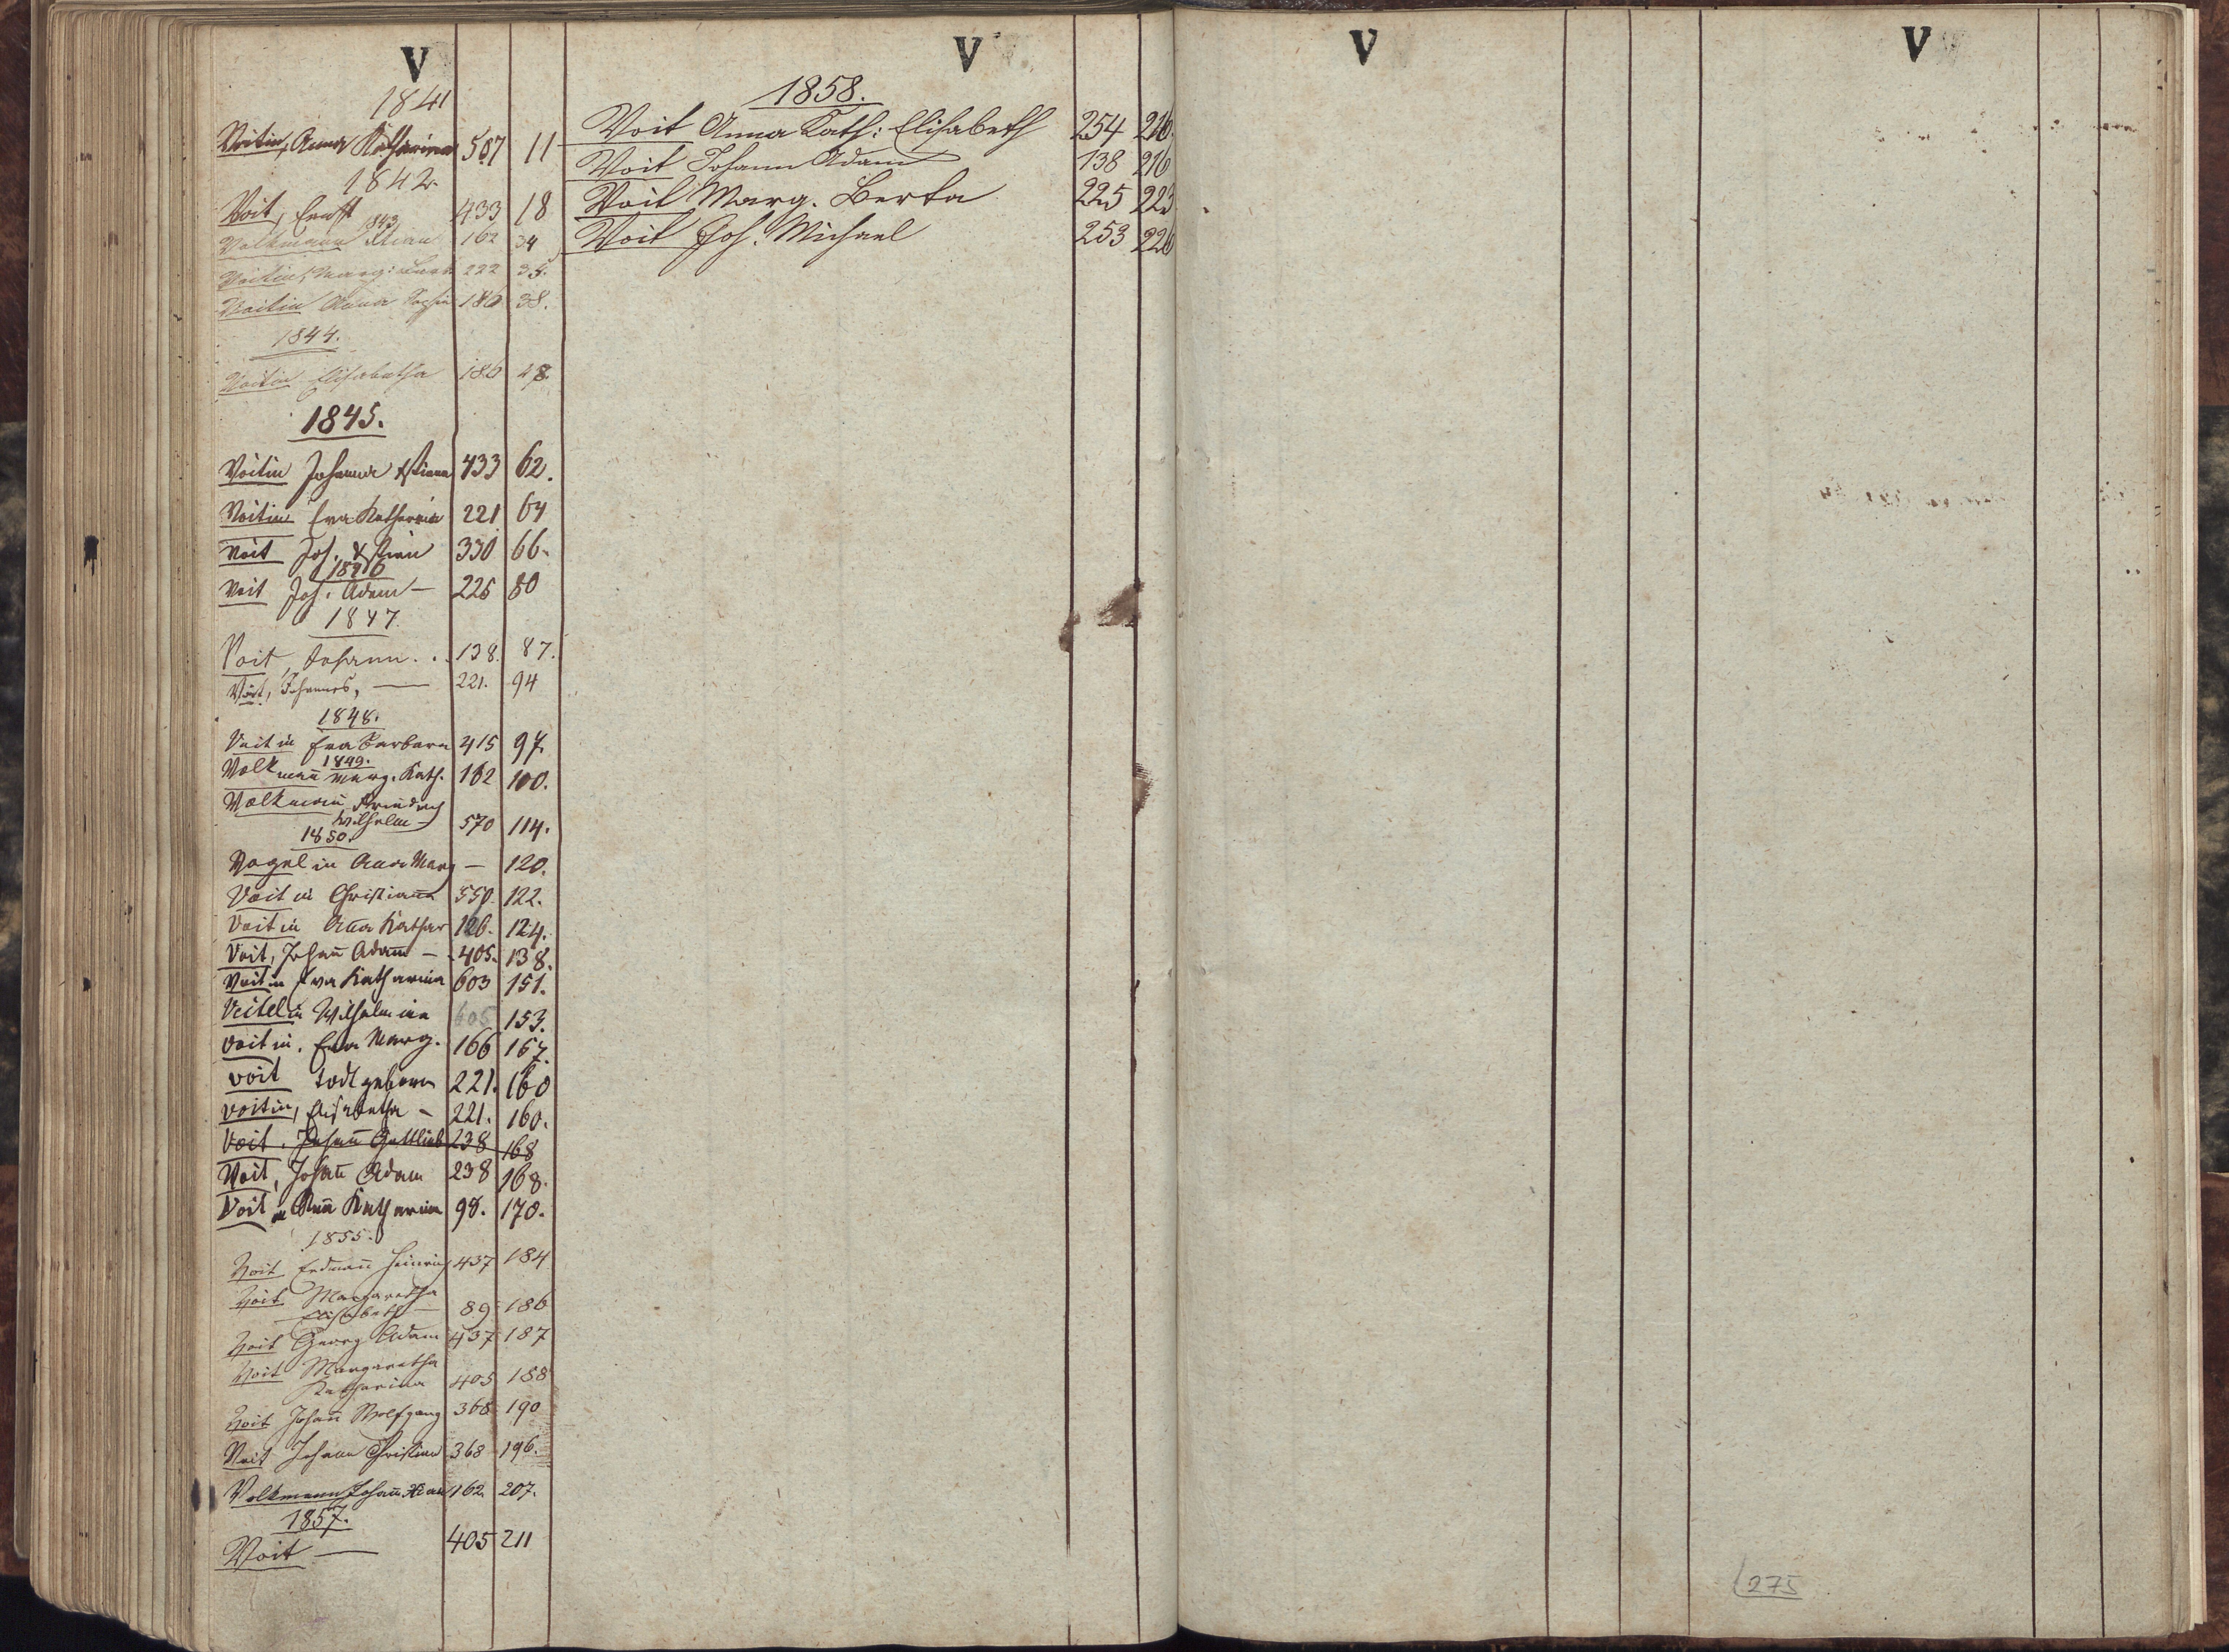 V
1841
Voitin, Anna Katharina 507 11
1842.
Voit, Ernst 433 18
1843
Volkmann Xtian 162 34
Voitin, Marg: Barb 222 35.
Voitin Anna Sophia 186 38.
1844.
Voitin Elisabetha 186 48.
1845.
Voitin Johanna Xstiana 433 62.
Voitin Eva Katharina 221 64
Voit Joh. Xstian 330 66.
1846
Voit Joh. Adam — 225 80
1847.
Voit, Johann . . 138. 87.
Voit, Johannes, — 221. 94
1848.
Voitin Eva Barbara 415 97.
1849.
Volkman̅ Marg. Kath. 162 100.
Volkman̅ Friedrich
Wilhelm — 570 114.
1850.
Vogelin Anna Marg — 120.
Voitin Christiana 550. 122.
Voitin An̅a Kathar 126. 124.
Voit, Johan̅ Adam — 405. 138.
Voitin Eva Katharina 603 151.
Veitelin Wilhelmine 605 153.
Voitin. Eva Marg. 166 157.
Voit todtgeboren 221. 160
Voitin, Elisabetha — 221. 160.
Voit. Johan̅ Gottlieb 238 168
Voit, Johan̅ Adam 238 168.
Voitin An̅a Katharina 98. 170.
1855.
Voit Erdman̅ Heinrich 437 184
Voit Margaretha
Elisabeth — 89 186
Voit Georg Adam 437 187
Voit Margaretha
Katharina 405 188
Voit Johan̅ Wolfgang 368 190
Voit Johann Christian 368 196.
Volkmann Johan̅ Xtian 162. 207.
1857.
Voit — 405 211
V
1858.
Voit Anna Kath: Elisabeth 254 216.
Voit Johann Adam 138 216
Voit Marg. Berta 225 223
Voit Joh. Michael 253 226
V
V
275